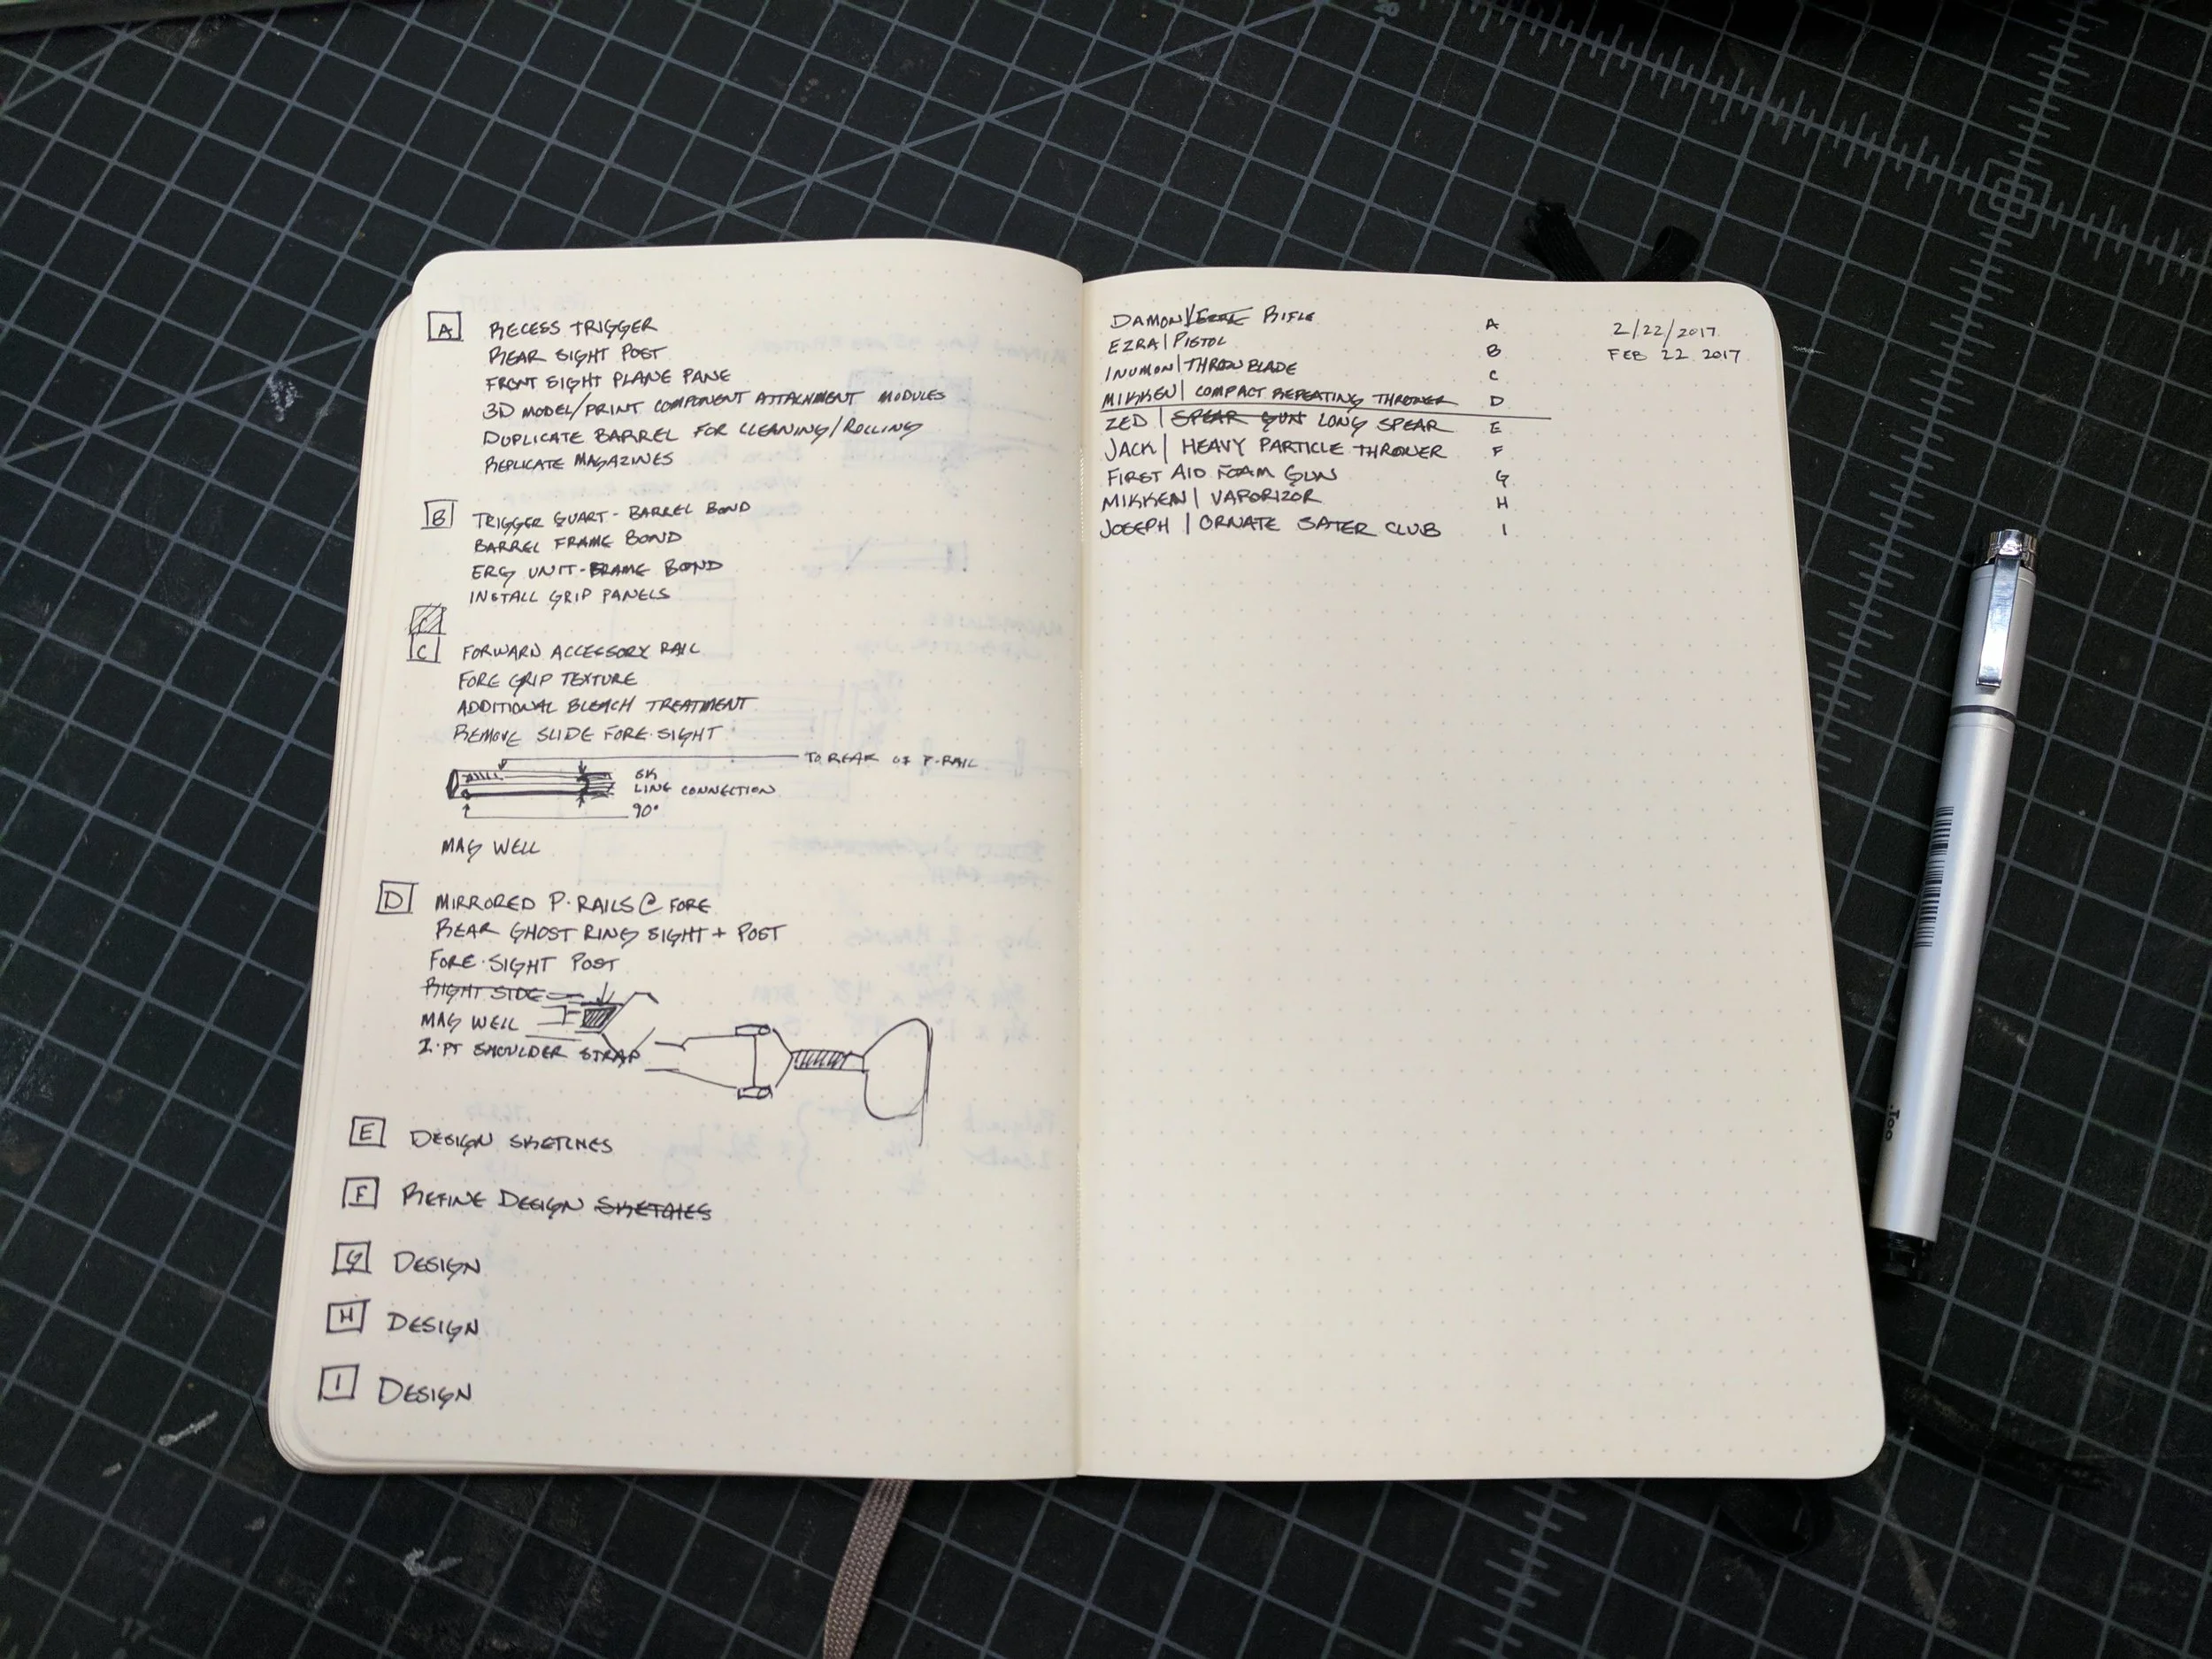 A RECESS TRIGGER
REAR SIGHT POST
FRONT SIGHT PLANE PANE
3D MODEL/PRINT COMPONENT ATTACHMENT MODULES
DUPLICATE BARREL FOR CLEANING/ROLLING
REPLICATE MAGAZINES
B TRIGGER GUART - BARREL BOND
BARREL FRAME BOND
ERG UNIT-FRAME BOND
INSTALL GRIP PANELS
C FORWARD ACCESSORY RAIL
FORE GRIP TEXTURE
ADDITIONAL BLEACH TREATMENT
REMOVE SLIDE FORE·SIGHT
TO REAR OF P·RAIL
LINE CONNECTION
90°
MAG WELL
D MIRRORED P·RAILS @ FORE
REAR GHOST RING SIGHT + POST
FORE·SIGHT POST
RIGHT SIDE
MAG WELL
2·PT SHOULDER STRAP
E DESIGN SKETCHES
F REFINE DESIGN SKETCHES
G DESIGN
H DESIGN
I DESIGN
DAMON/EZRA RIFLE A
EZRA | PISTOL B
INUMON | THROW BLADE C
MIKKEN | COMPACT REPEATING THROWER D
ZED | SPEAR GUN LONG SPEAR E
JACK | HEAVY PARTICLE THROWER F
FIRST AID FOAM GUN G
MIKKEN | VAPORIZOR H
JOSEPH | ORNATE SATER CLUB I
2/22/2017
FEB 22 2017
.Too